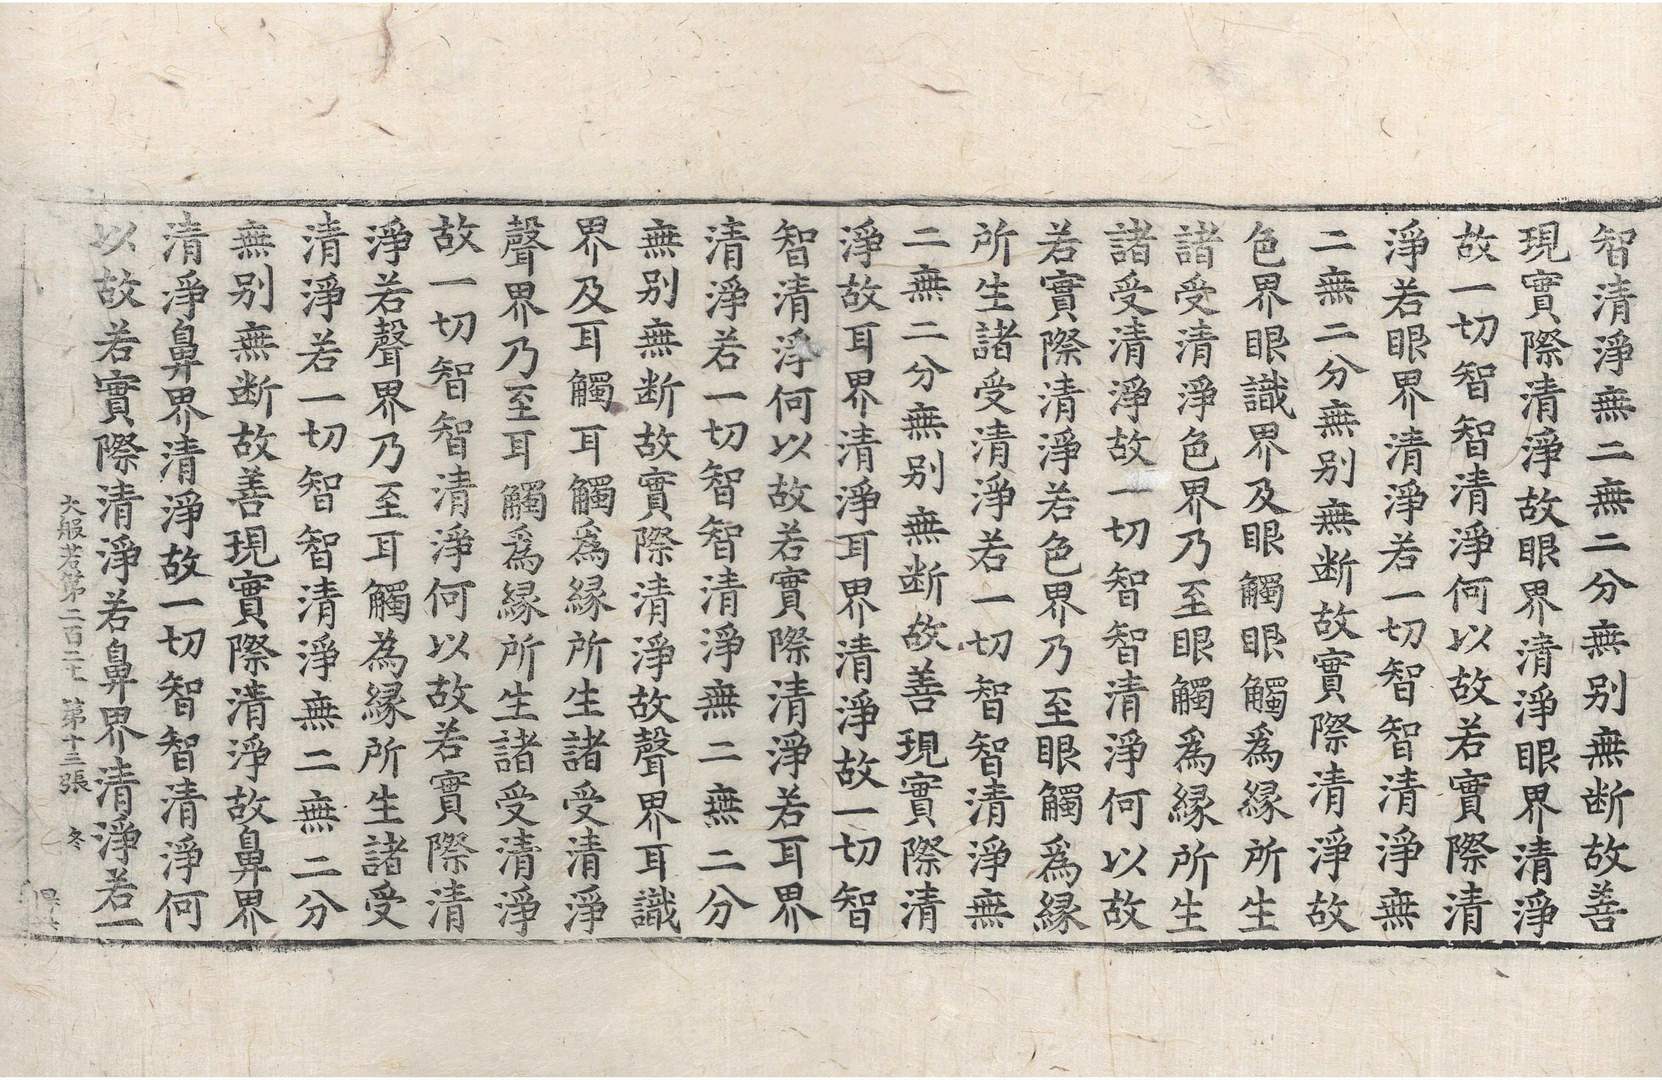 智清淨無二無二分無别無断故善
現實際清淨故眼界清淨眼界清淨
故一切智智清淨何以故若實際清
淨若眼界清淨若一切智智清淨無
二無二分無别無断故實際清淨故
色界眼識界及眼觸眼觸爲縁所生
諸受清淨色界乃至眼觸爲縁所生
諸受清淨故一切智智清淨何以故
若實際清淨若色界乃至眼觸爲縁
所生諸受清淨若一切智智清淨無
二無二分無别無断故善現實際清
淨故耳界清淨耳界清淨故一切智
智清淨何以故若實際清淨若耳界
清淨若一切智智清淨無二無二分
無别無断故實際清淨故聲界耳識
界及耳觸耳觸爲縁所生諸受清淨
聲界乃至耳觸爲縁所生諸受清淨
故一切智智清淨何以故若實際清
淨若聲界乃至耳觸為縁所生諸受
清淨若一切智智清淨無二無二分
無别無断故善現實際清淨故鼻界
清淨鼻界清淨故一切智智清淨何
以故若實際清淨若鼻界清淨若一
大般若第二百二 第十三張 冬